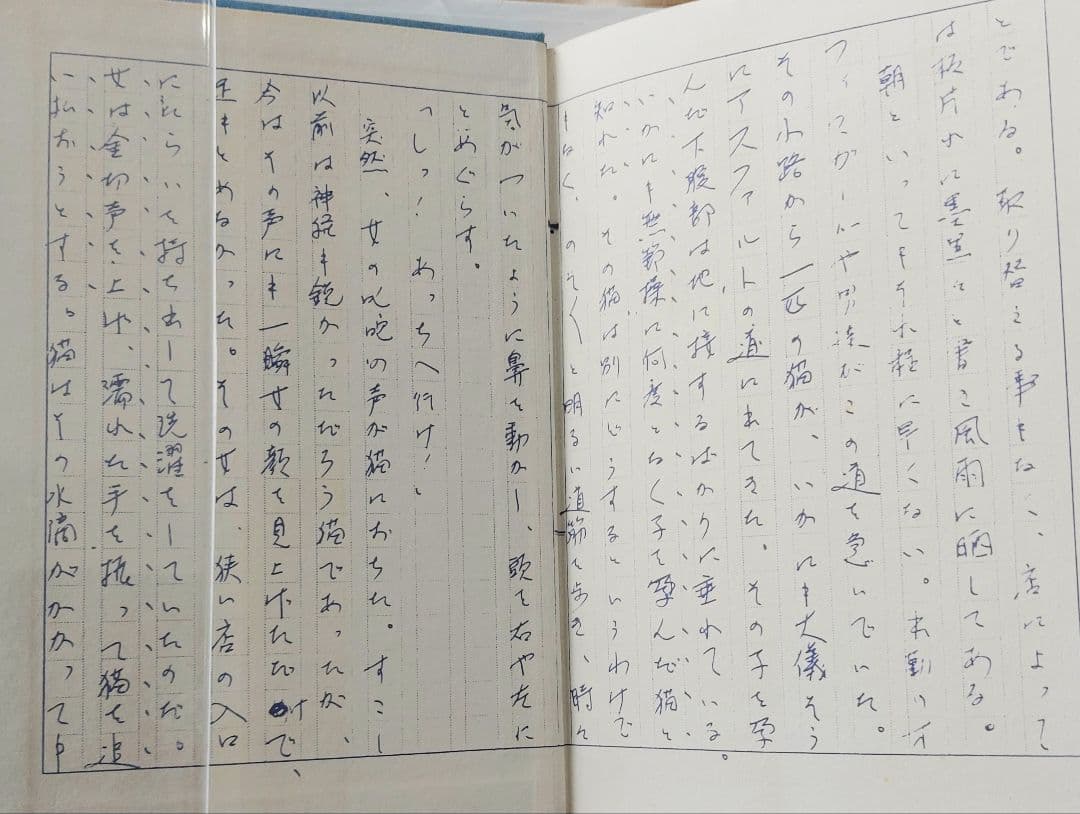 とである。取り替える事もなく、店によって
は板片れに墨黒々と書き風雨に晒してある。
朝といってもそれ程に早くない。出勤のオ
フィスガールや男達がこの道を急いでいた。
その小路から一匹の猫が、いかにも大儀そう
にアスファルトの道に出てきた。その子を孕
んだ下腹部は地に接するばかりに垂れている。
いかにも無節操に何度となく子を孕んだ猫と
知れた。その猫は別にどうするというわけで
もなく、のそ〱と明るい道筋を歩き、時々
気がついたように鼻を動かし、頭を右や左に
とめぐらす。
「しっ！ あっちへ行け！」
突然、女の叱咤の声が猫におちた。すこし
以前は神経も鋭かっただろう猫であったが、
今はその声にも一瞬女の顔を見上げただけで、
足もとめなかった。その女は、狭い店の入口
にたらいを持ち出して洗濯をしていたのだ。
女は金切声を上げ、濡れた手を振って猫を追
い払おうとする。猫はその水滴がかかっても